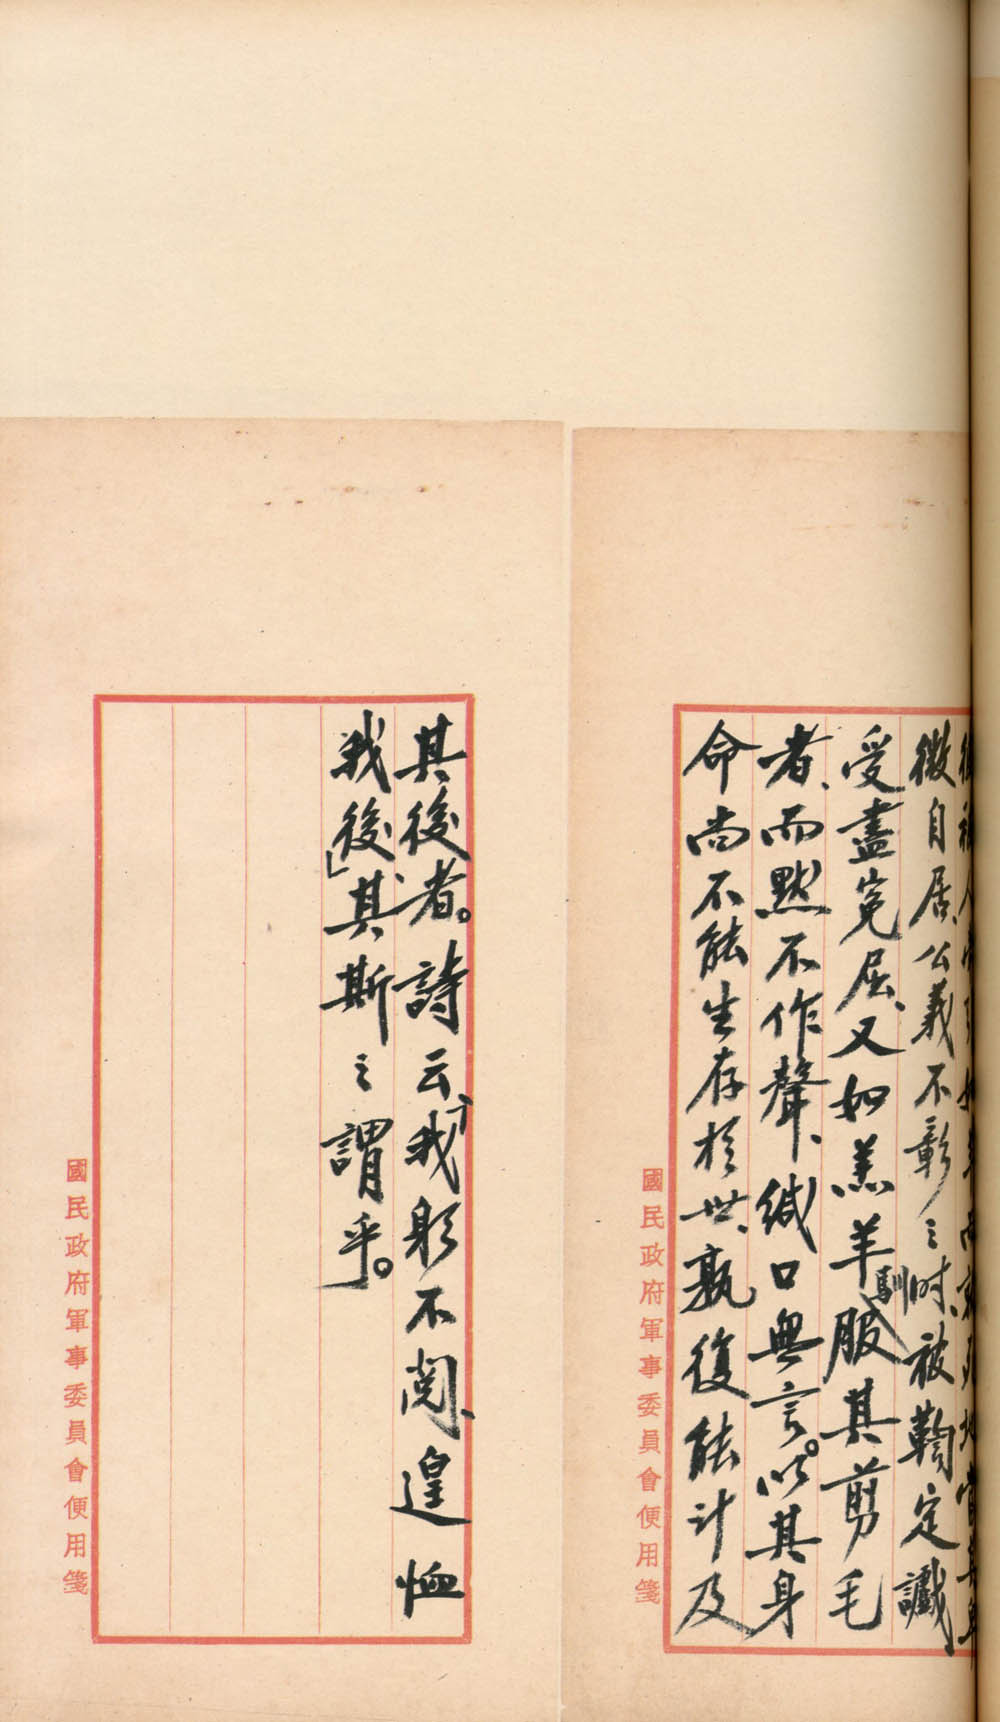 微自居、公義不彰之時、被鞫定讞
受盡冤屈、又如羔羊馴服其剪毛
者、而默不作聲、緘口無言。以其身
命尚不能生存於世、孰復能計及
國民政府軍事委員會便用箋
其後者。詩云、「我躬不閱、遑恤
我後」、其斯之謂乎。
國民政府軍事委員會便用箋